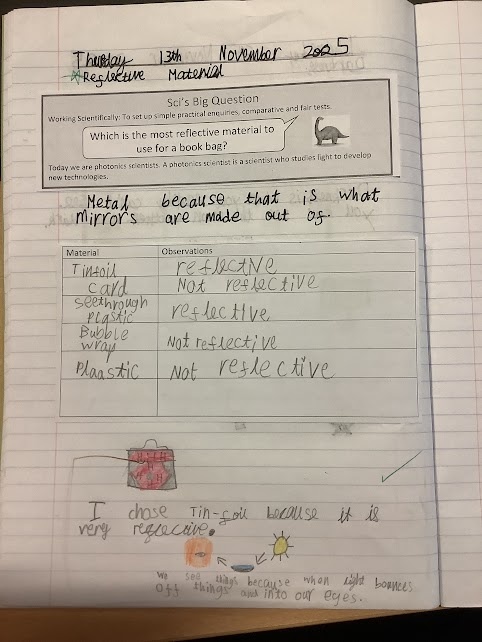 Thursday 13th November 2025
Reglective Material
Sci's Big Question
Working Scientifically: To set up simple practical enquiries, comparative and fair tests.
Which is the most reflective material to
use for a book bag?
Today we are photonics scientists. A photonics scientist is a scientist who studies light to develop
new technologies.
Metal because that is what
mirrors are made out of.
Material Observations
Tinfoil reflective
card Not reflective
seethrough
plastic reflective
Bubble
wrap Not reflective
plaastic Not reflective
I chose Tin-foil because it is
very refleccive.
We see things because when light bounces
off things and into our eyes.